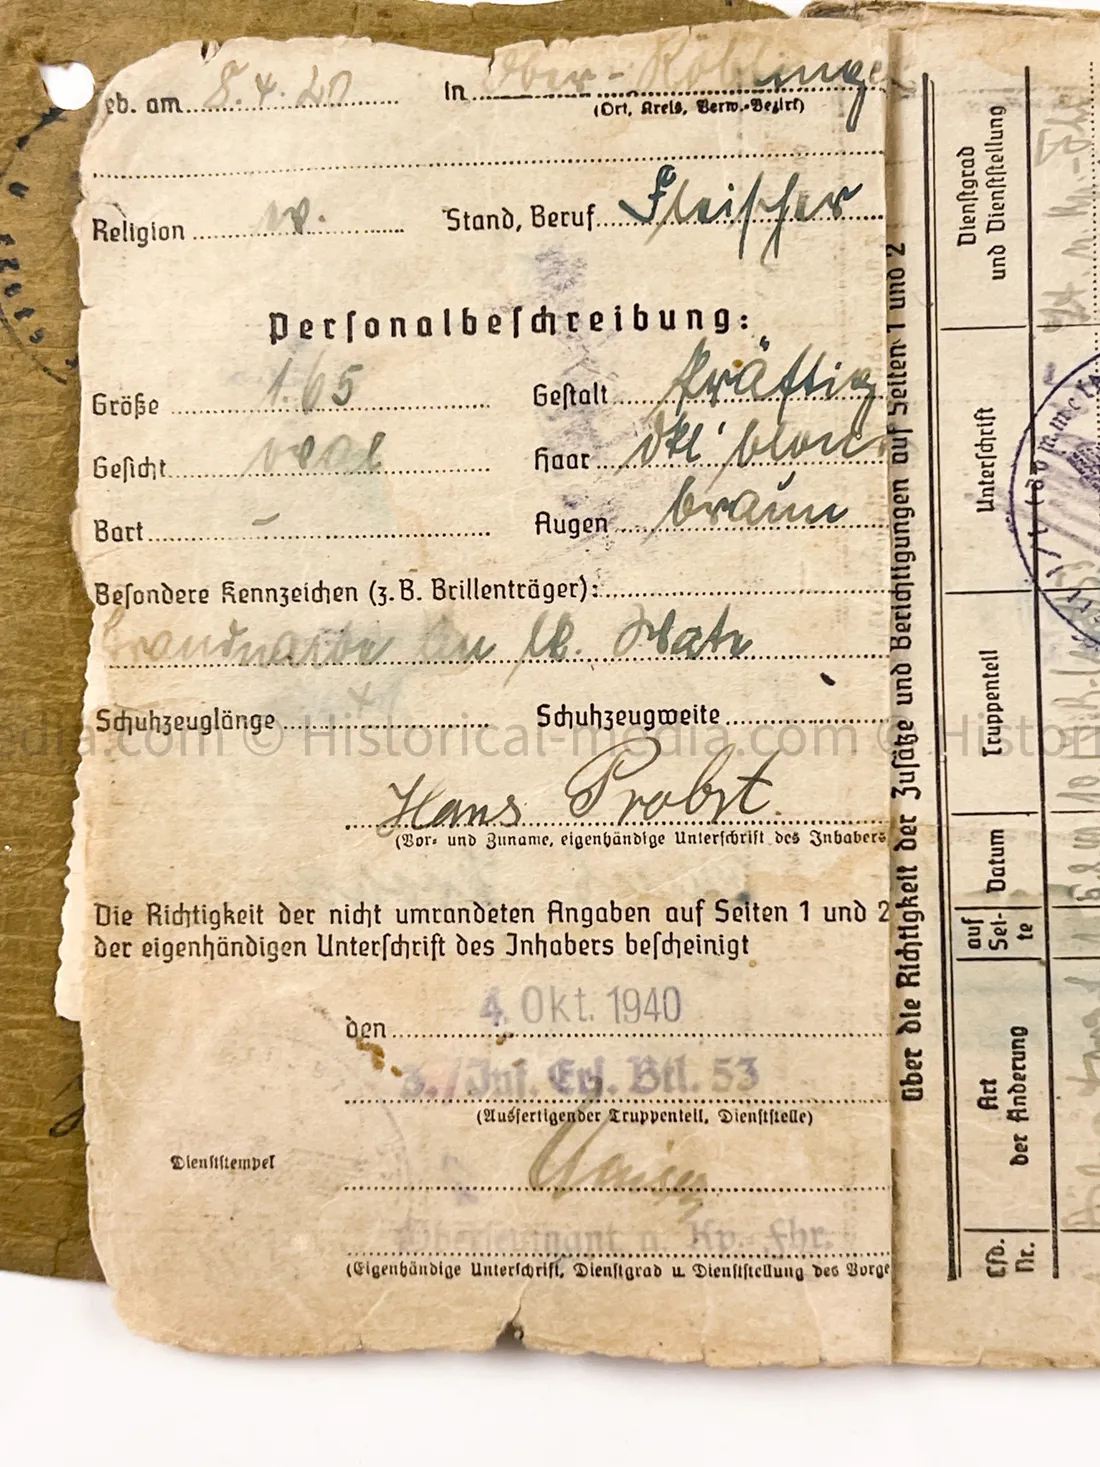 eb. am 8.4.20 in Ober-Röblingen
(Ort, Kreis, Verw.-Bezirk)
Religion ev. Stand, Beruf Fleischer
Personalbeschreibung:
Größe 1.65 Gestalt kräftig
Gesicht oval Haar dkl' blon
Bart – Augen braun
Besondere Kennzeichen (z. B. Brillenträger):
Brandnarbe an lk. Wate
Schuhzeuglänge Schuhzeugweite
Hans Probst.
(Vor- und Zuname, eigenhändige Unterschrift des Inhabers
Die Richtigkeit der nicht umrandeten Angaben auf Seiten 1 und 2
der eigenhändigen Unterschrift des Inhabers bescheinigt
den 4. Okt. 1940
3./Inf. Ers. Btl. 53
(Ausfertigender Truppenteil, Dienststelle)
Dienststempel
Oberleutnant u. Kp.-Fhr.
(Eigenhändige Unterschrift, Dienstgrad u. Dienststellung des Vorge
über die Richtigkeit der Zusätze und Berichtigungen auf Seiten 1 und 2
Lfd. Nr.
Art der Änderung
auf Sei-te
Datum
Truppenteil
Unterschrift
Dienstgrad und Dienststellung
dia.com © Historical-media.com © Histor